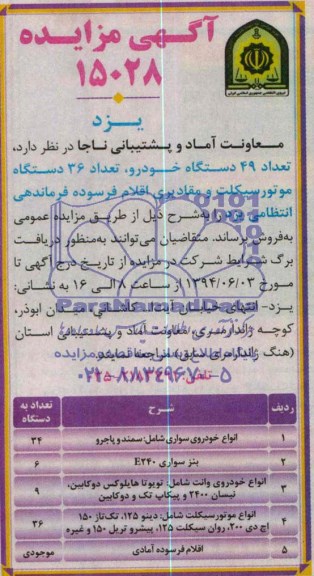 آگهی مزایده
۱۵۰۲۸
یزد
معاونت آماد و پشتیبانی ناجا در نظر دارد،
تعداد ۴۹ دستگاه خودرو، تعداد ۳۶ دستگاه
موتورسیکلت و مقادیری اقلام فرسوده فرماندهی
انتظامی یزد را به‌شرح ذیل از طریق مزایده عمومی
به‌فروش برساند. متقاضیان می‌توانند به‌منظور دریافت
برگ شرایط شرکت در مزایده از تاریخ درج آگهی تا
مورخ ۱۳۹۴/۰۶/۰۳ از ساعت ۸ الی ۱۶ به نشانی:
یزد- انتهای خیابان آیت‌ا... کاشانی، میدان ابوذر،
کوچه ژاندارمری، معاونت آماد و پشتیبانی استان
(هنگ ژاندارمری سابق) مراجعه نمایند.
تلفن:
ParsNamadData
۰۲۱-۸۸۳۴۹۶۷۰-۵
ردیف شرح تعداد به دستگاه
۱ انواع خودروی سواری شامل: سمند و پاجرو ۳۴
۲ بنز سواری E۲۴۰ ۶
۳ انواع خودروی وانت شامل: تویوتا هایلوکس دوکابین، نیسان ۲۴۰۰ و پیکاپ تک و دوکابین ۹
۴ انواع موتورسیکلت شامل: دینو ۱۲۵، تک‌تاز ۱۵۰ اچ دی ۲۰۰، روان سیکلت ۱۲۵، پیشرو تریل ۱۵۰ و غیره ۳۶
۵ اقلام فرسوده آمادی موجودی